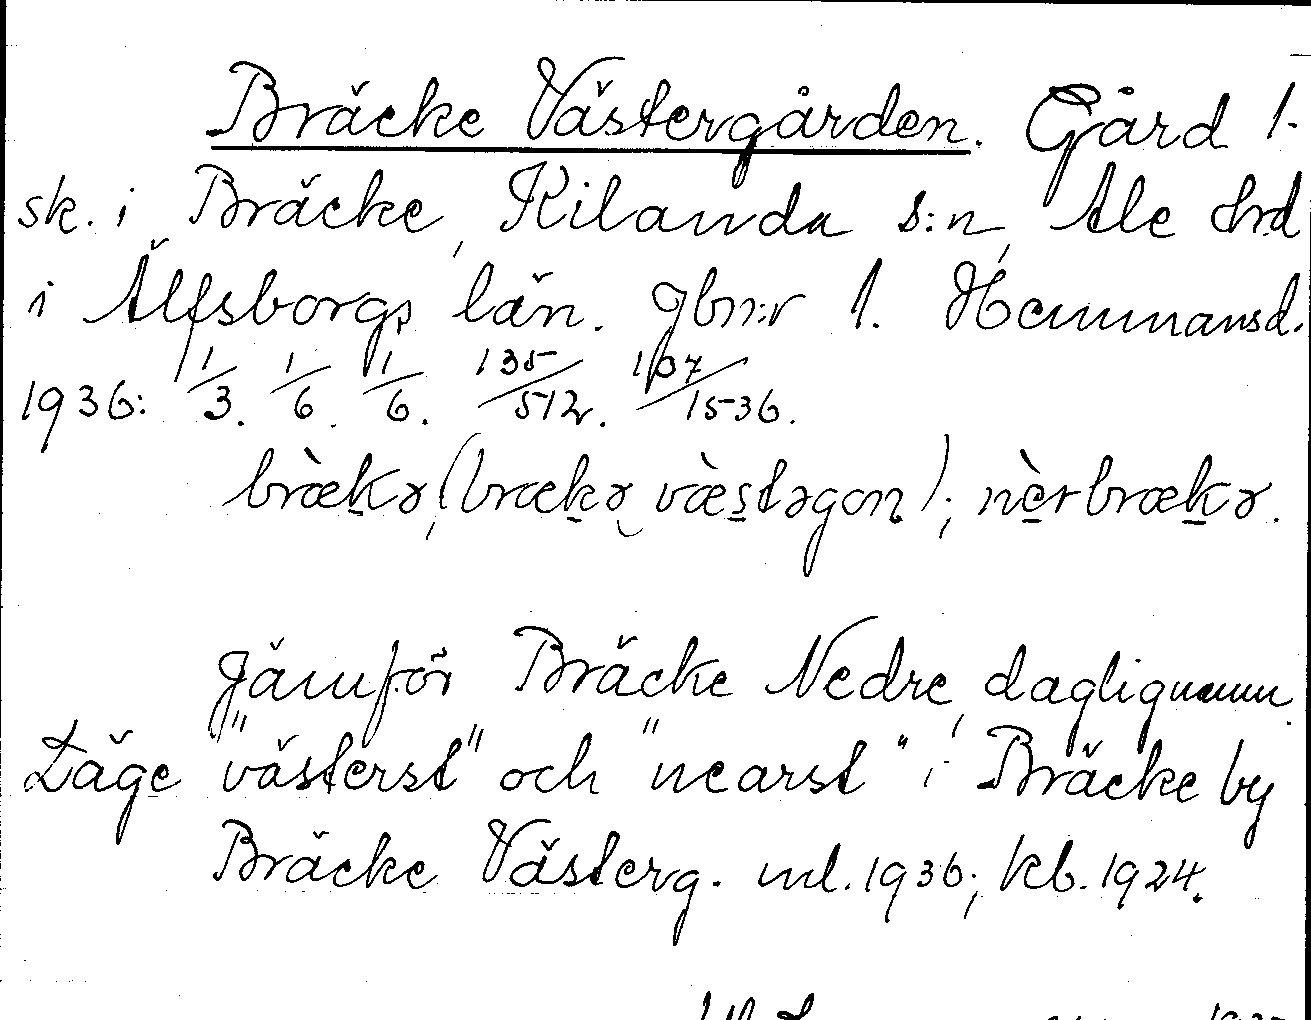 Bräcke Västergården. Gård 1-
sk. i Bräcke, Kilanda s:n, Ale hrd
i Älfsborgs län. Jbn:r 1. Hemmansd.
1936: 1/3. 1/6. 1/6. 135/512. 107/1536.
bræ̀kə, (brækə væ̀stəgɔn); nèrbrækə.
Jämför Bräcke Nedre, dagliguamn.
Läge "västerst" och "nearst" i Bräcke by
Bräcke Västerg. ml. 1936; kb. 1924.